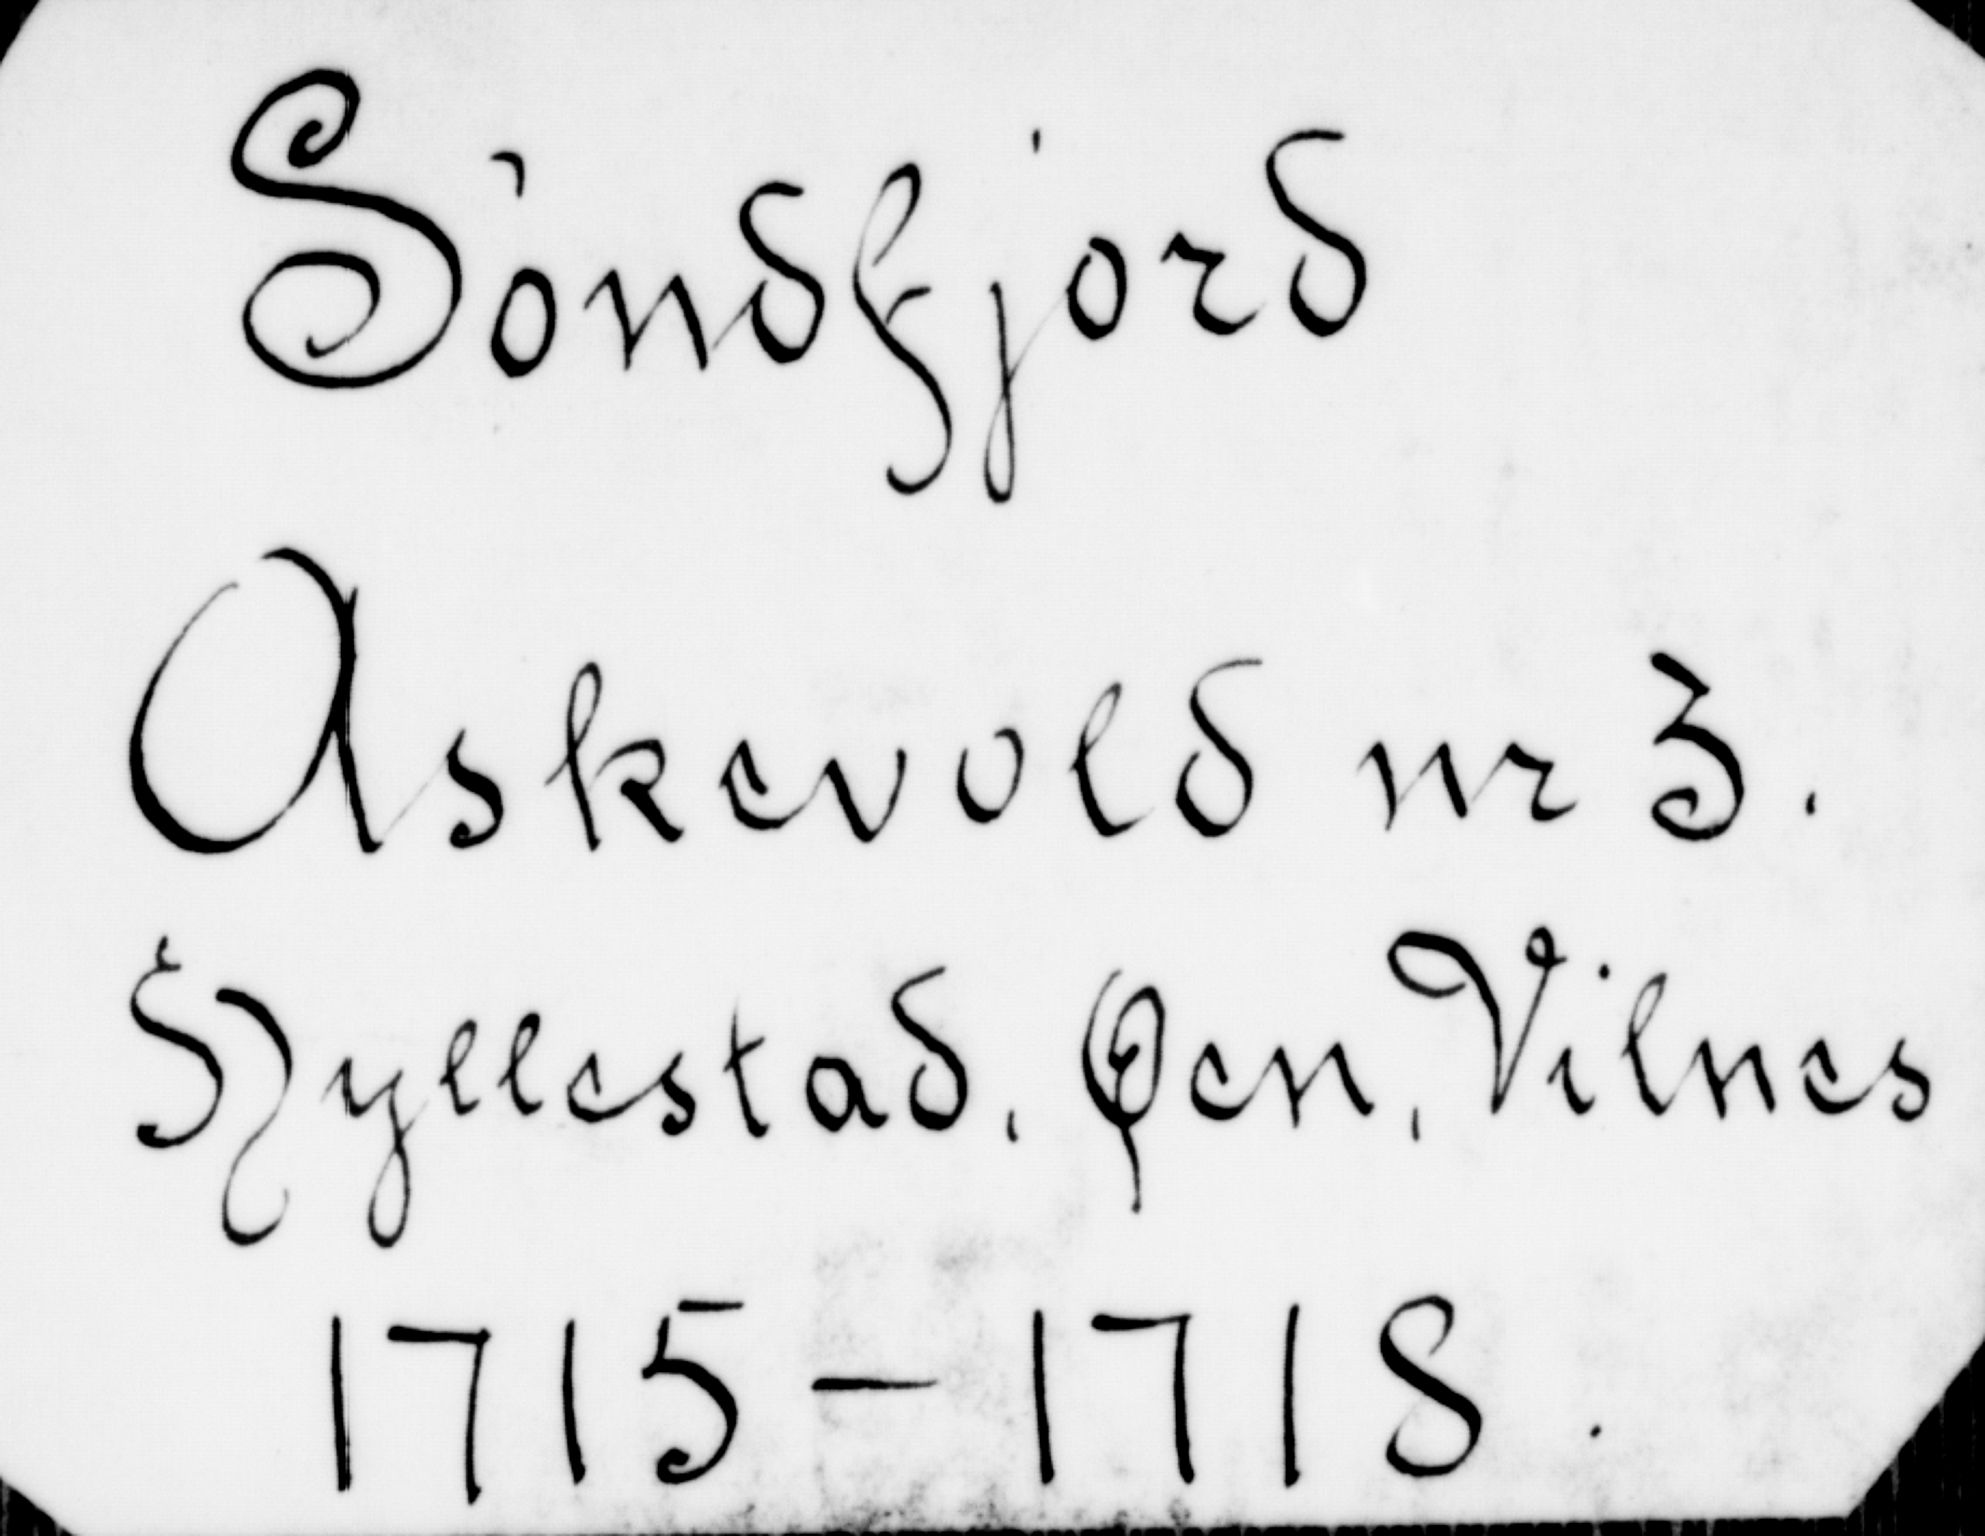 Söndfjord
Askevold nr 3.
Hyllestad, Øen, Vilnes
1715 – 1718.